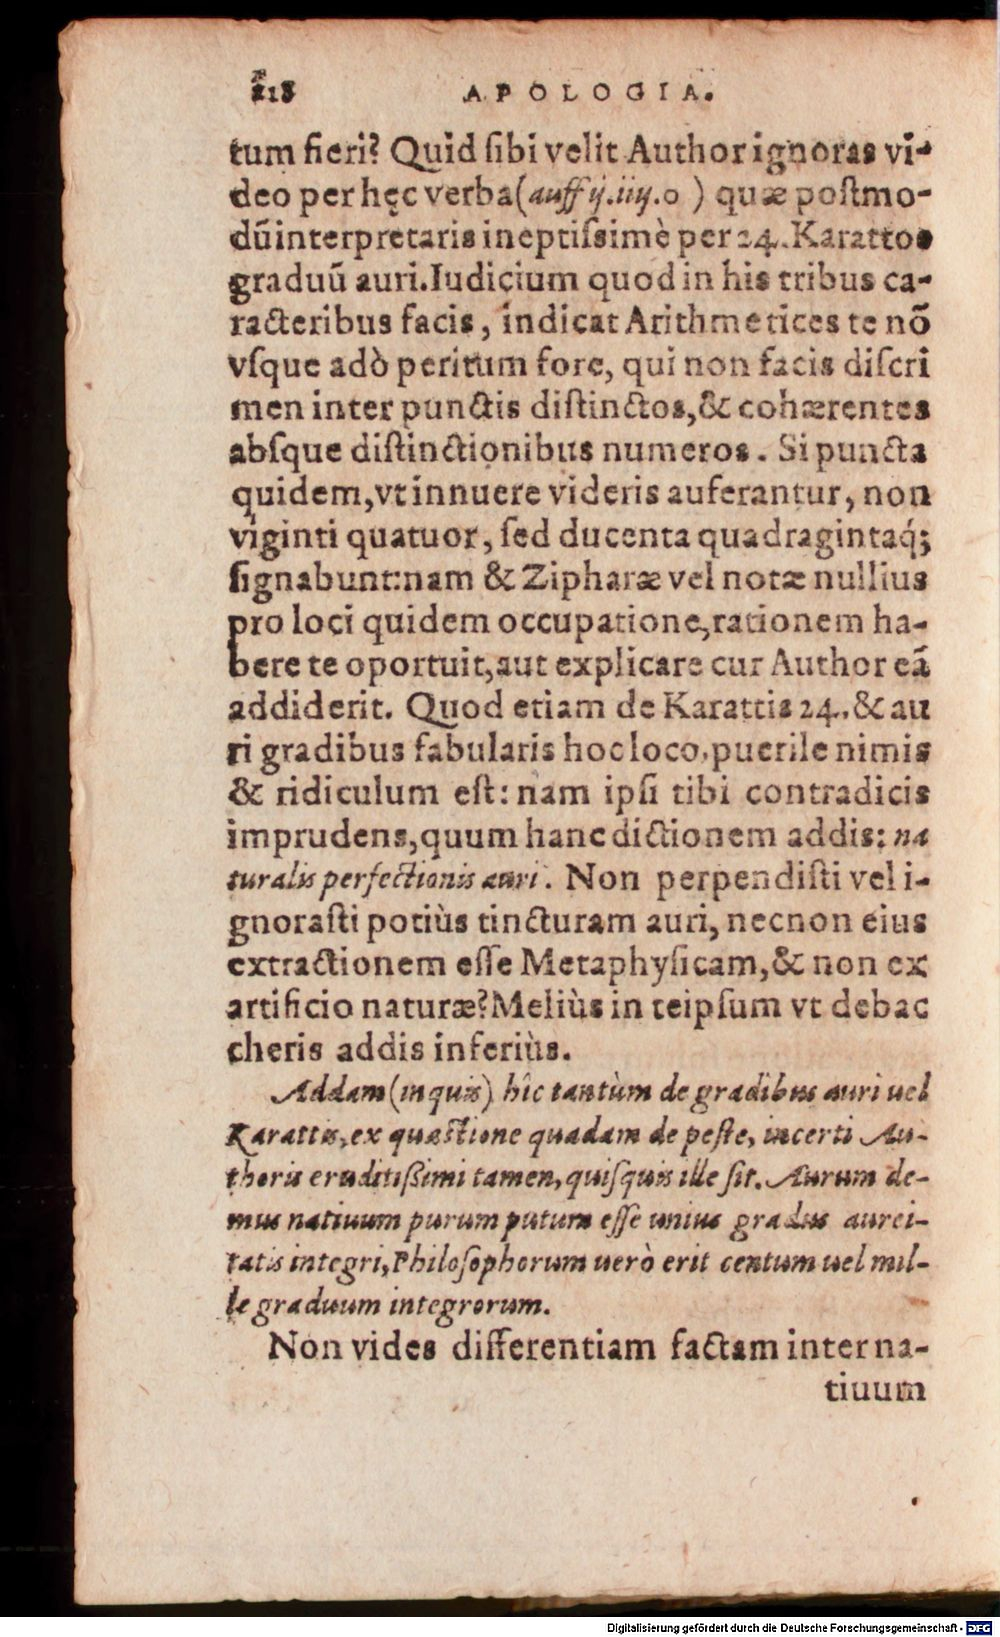 218 APOLOGIA.
tum fieri? Quid ſibi velit Author ignoras vi-
deo per hęc verba (auff ij.iiij.0 ) quæ poſtmo-
dũ interpretaris ineptiſsimè per 24. Karattos
graduũ auri. Iudicium quod in his tribus ca-
racteribus facis, indicat Arithmetices te nõ
vſque adò peritum fore, qui non facis diſcri
men inter punctis diſtinctos, & cohærentes
abſque diſtinctionibus numeros. Si puncta
quidem, vt innuere videris auferantur, non
viginti quatuor, ſed ducenta quadragintaq́;
ſignabunt: nam & Zipharæ vel notæ nullius
pro loci quidem occupatione, rationem ha-
bere te oportuit, aut explicare cur Author eã
addiderit. Quod etiam de Karattis 24. & au
ri gradibus fabularis hoc loco, puerile nimis
& ridiculum eſt: nam ipſi tibi contradicis
imprudens, quum hanc dictionem addis: na
turalis perfectionis auri. Non perpendiſti vel i-
gnoraſti potiùs tincturam auri, necnon eius
extractionem eſſe Metaphyſicam, & non ex
artificio naturæ? Meliùs in teipſum vt debac
cheris addis inferiùs.
Addam (inquis) hîc tantùm de gradibus auri uel
Karattis, ex quæſtione quadam de peſte, incerti Au-
thoris eruditißimi tamen, quiſquis ille ſit. Aurum de-
mus natiuum purum putum eſſe unius gradus aurei-
tatis integri, Philoſophorum uerò erit centum uel mil-
le graduum integrorum.
Non vides differentiam factam inter na-
tiuum
Digitalisierung gefördert durch die Deutsche Forschungsgemeinschaft - DFG